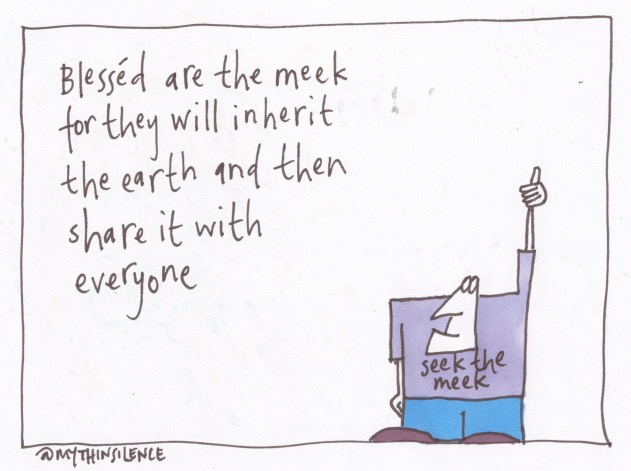 Blesséd are the meek
for they will inherit
the earth and then
share it with
everyone
seek the
meek
@MYTHINSILENCE